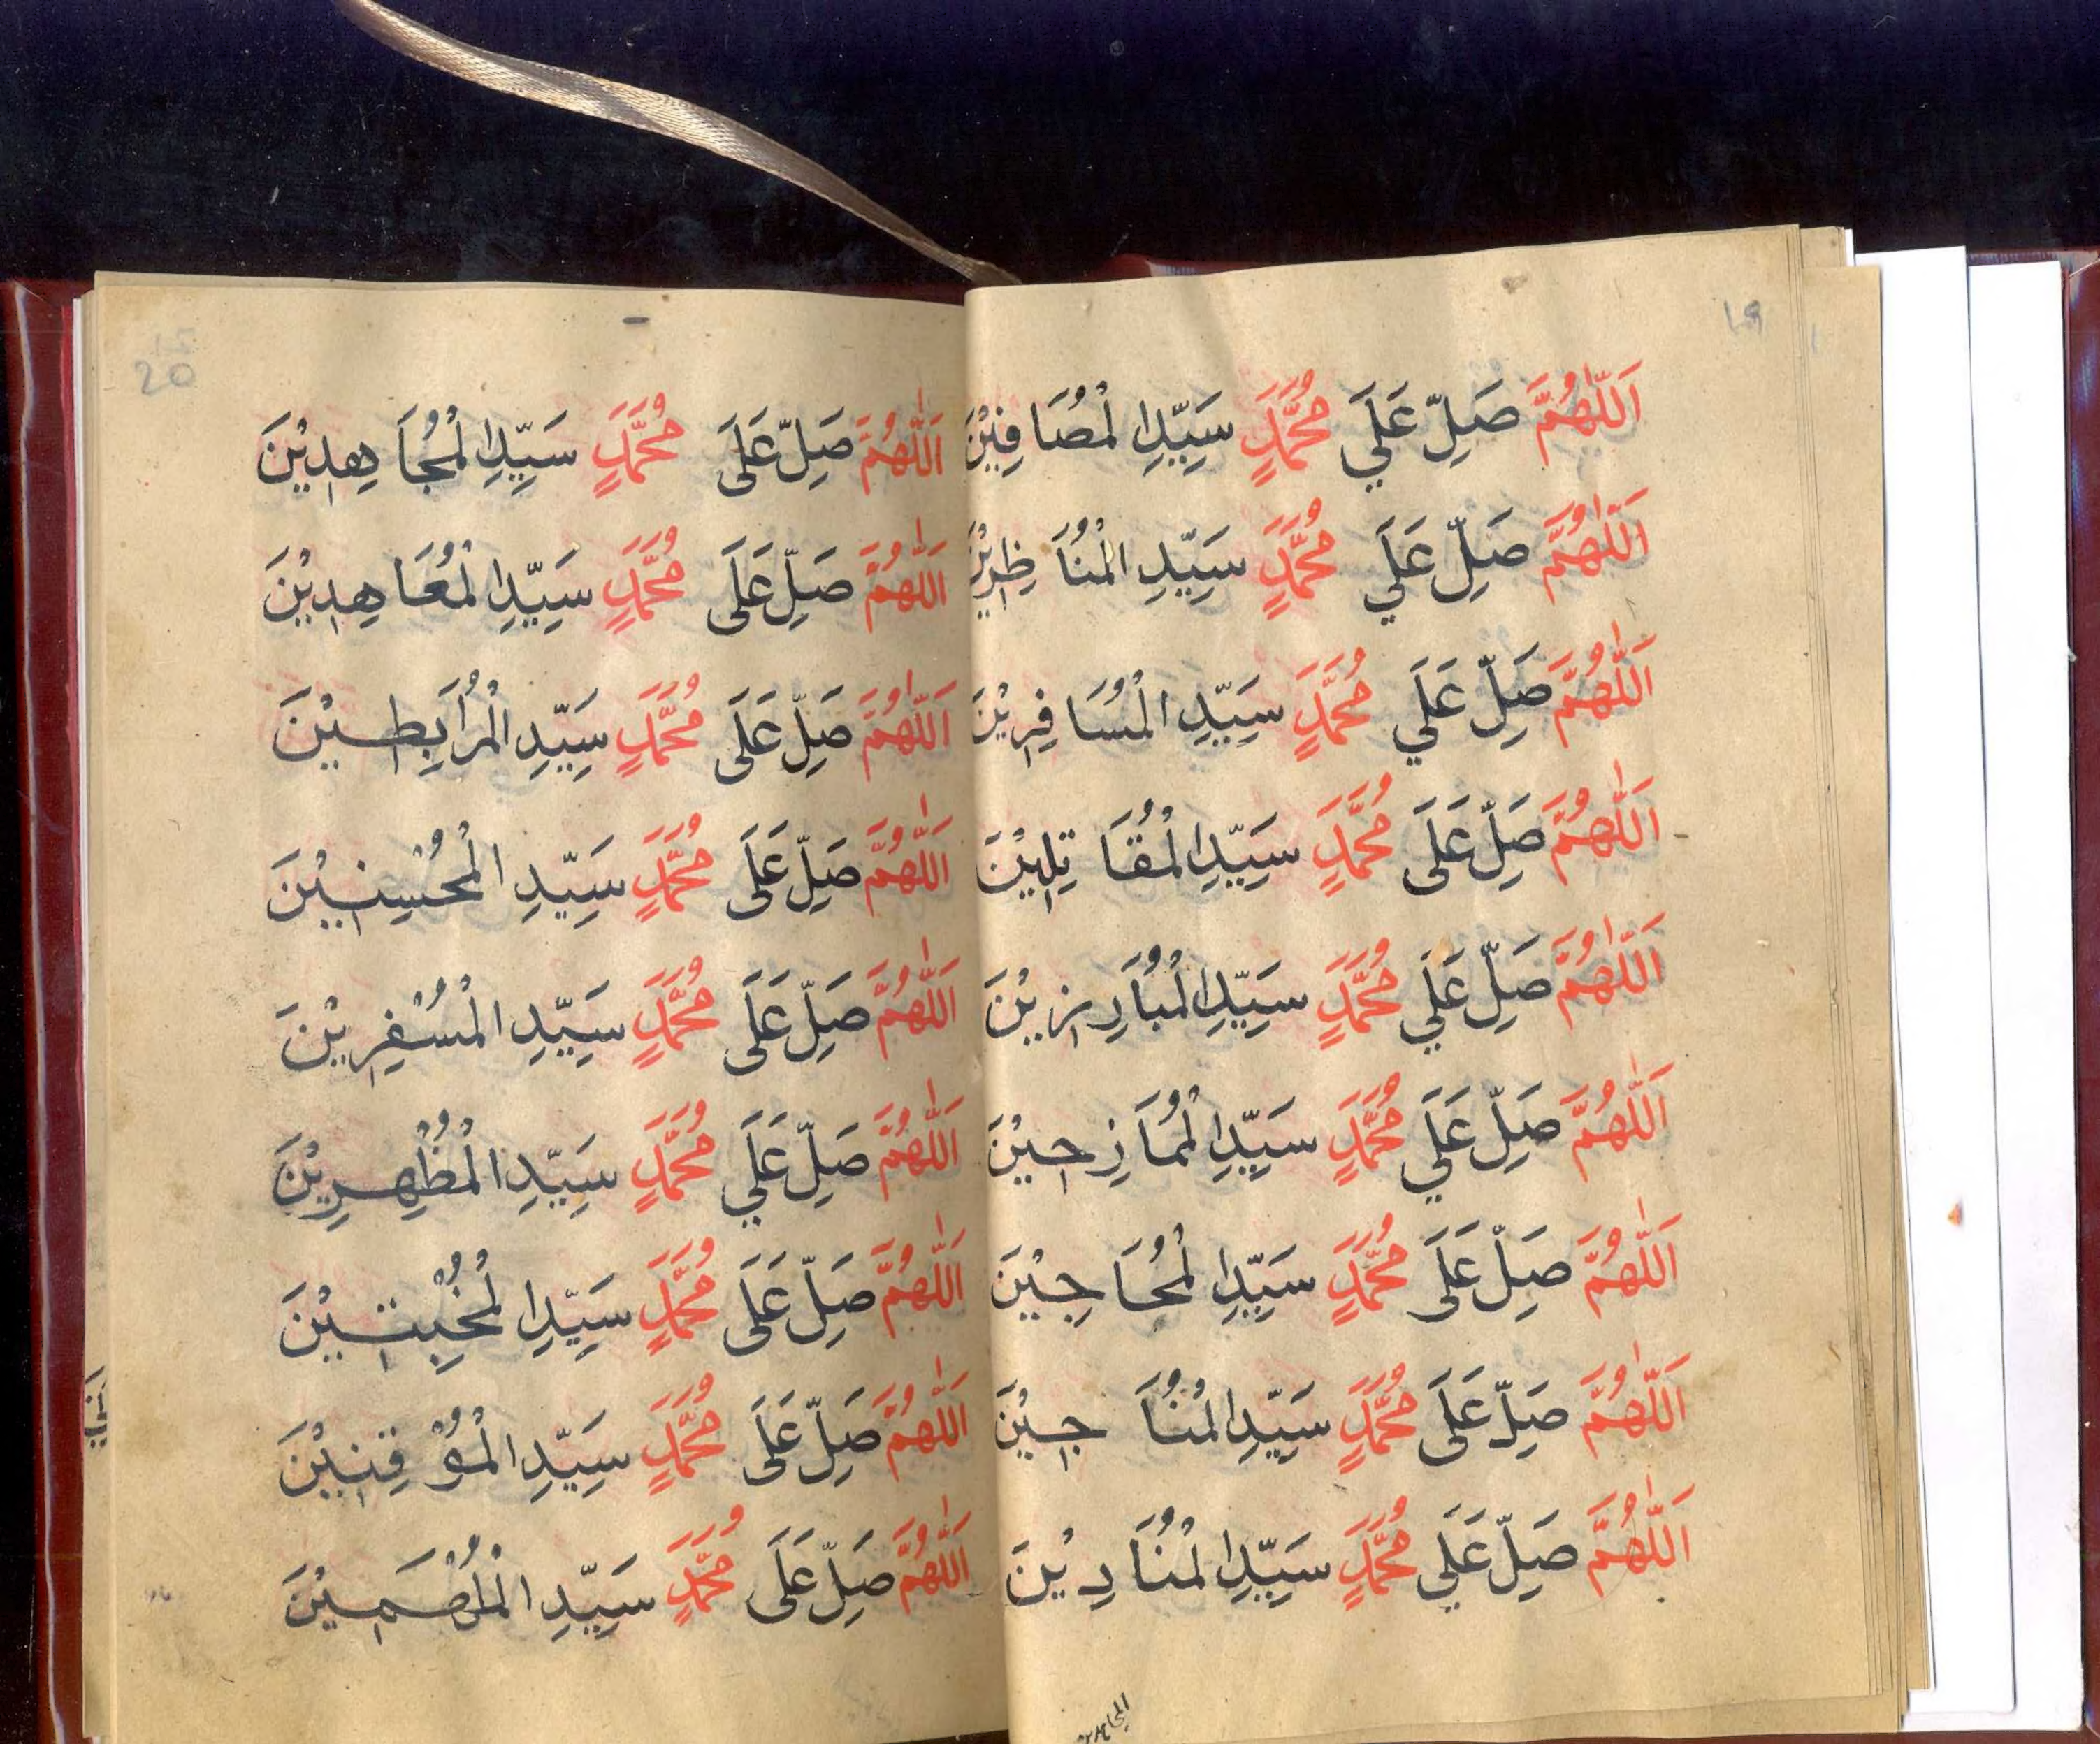 ١٩
اَللّٰهُمَّ صَلِّ عَلَي مُحَمَّدٍ سَيِّدِ الْمُصَافِيْنَ
اَللّٰهُمَّ صَلِّ عَلَي مُحَمَّدٍ سَيِّدِ الْمُنَاظِرِيْنَ
اَللّٰهُمَّ صَلِّ عَلَي مُحَمَّدٍ سَيِّدِ الْمُسَافِرِيْنَ
اَللّٰهُمَّ صَلِّ عَلَى مُحَمَّدٍ سَيِّدِ الْمُقَاتِلِيْنَ
اَللّٰهُمَّ صَلِّ عَلَي مُحَمَّدٍ سَيِّدِ الْمُبَارِزِيْنَ
اَللّٰهُمَّ صَلِّ عَلَي مُحَمَّدٍ سَيِّدِ الْمُمَازِحِيْنَ
اَللّٰهُمَّ صَلِّ عَلَى مُحَمَّدٍ سَيِّدِ الْمُحَاجِيْنَ
اَللّٰهُمَّ صَلِّ عَلَى مُحَمَّدٍ سَيِّدِ الْمُنَاجِيْنَ
اَللّٰهُمَّ صَلِّ عَلَي مُحَمَّدٍ سَيِّدِ الْمُنَادِيْنَ
المجاهدين
20
اَللّٰهُمَّ صَلِّ عَلَى مُحَمَّدٍ سَيِّدِ الْمُجَاهِدِيْنَ
اَللّٰهُمَّ صَلِّ عَلَى مُحَمَّدٍ سَيِّدِ الْمُعَاهِدِيْنَ
اَللّٰهُمَّ صَلِّ عَلَى مُحَمَّدٍ سَيِّدِ الْمُرَابِطِيْنَ
اَللّٰهُمَّ صَلِّ عَلَى مُحَمَّدٍ سَيِّدِ الْمُحْسِنِيْنَ
اَللّٰهُمَّ صَلِّ عَلَى مُحَمَّدٍ سَيِّدِ الْمُسْفِرِيْنَ
اَللّٰهُمَّ صَلِّ عَلَي مُحَمَّدٍ سَيِّدِ الْمُظْهِرِيْنَ
اَللّٰهُمَّ صَلِّ عَلَى مُحَمَّدٍ سَيِّدِ الْمُخْبِتِيْنَ
اَللّٰهُمَّ صَلِّ عَلَى مُحَمَّدٍ سَيِّدِ الْمُوْقِنِيْنَ
اَللّٰهُمَّ صَلِّ عَلَى مُحَمَّدٍ سَيِّدِ الْمُلْهَمِيْنَ